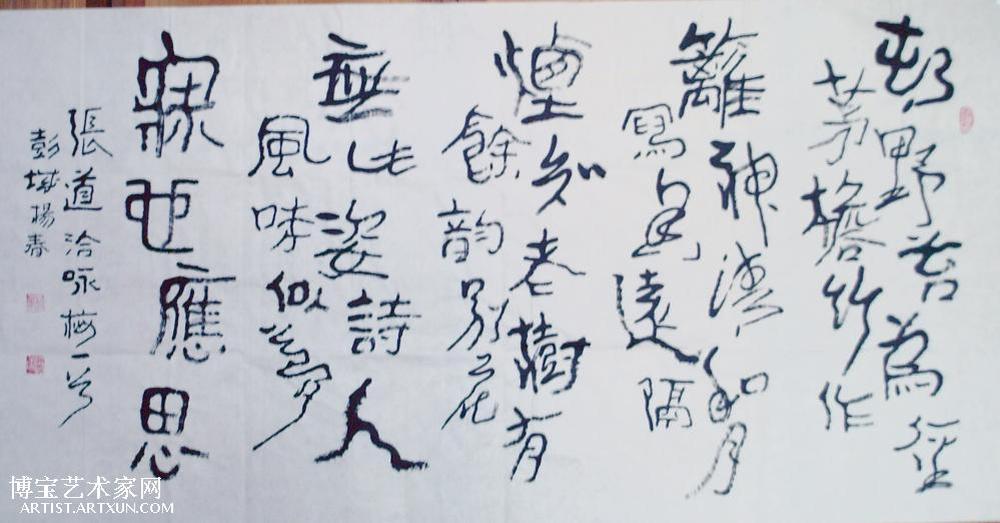 邨野苔為徑
茅檐竹作
籬神清和月
寫皀遠隔
煙知老樹有
餘韵別花
無此姿詩人
風味似夢
寐也應思
張道洽咏梅一首
彭城楊春
博宝艺术家网
ARTIST.ARTXUN.COM